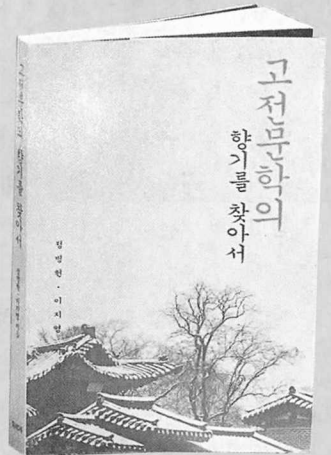 고전문학의
향기를 찾아서
정병헌 · 이지영
고전문학의 향기를 찾아서